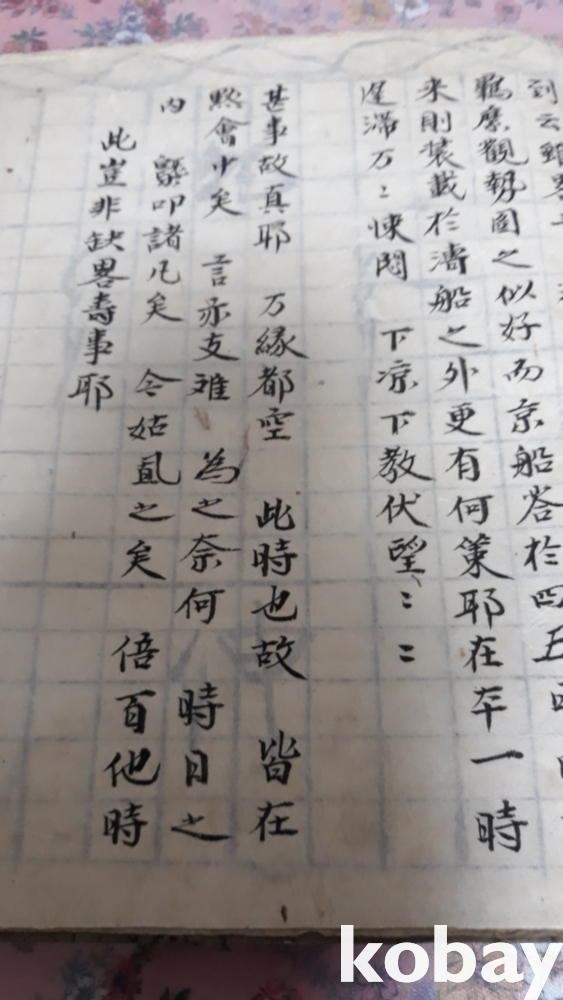 到云
鷄膓觀勢圖之似好而京船沓於四五
來則裝載於濟船之外更有何策耶在卒一時
遲滯万〻悚悶 下凉下教伏望〻〻
甚事故真耶 万緣都空 此時也故 皆在
默會中矣 言亦支離 為之奈何 時日之
內 叩諸凡矣 今姑置之矣 倍百他時
此豈非缺畧壽事耶
kobay